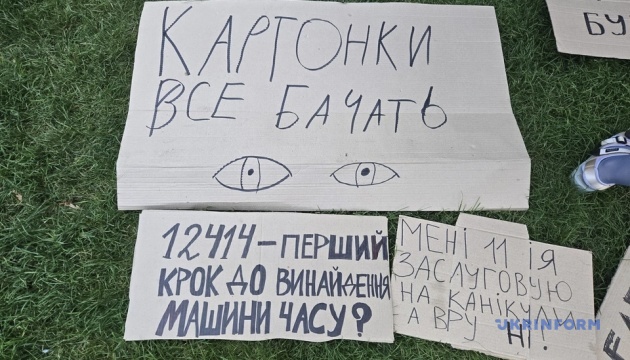 КАРТОНКИ
ВСЕ БАЧАТЬ
БУ
12414 – ПЕРШИЙ
КРОК ДО ВИНАЙДЕННЯ
МАШИНИ ЧАСУ?
МЕНІ 11 І Я
ЗАСЛУГОВУЮ
НА КАНІКУЛИ
А ВРУ НІ!
UKRINFORM